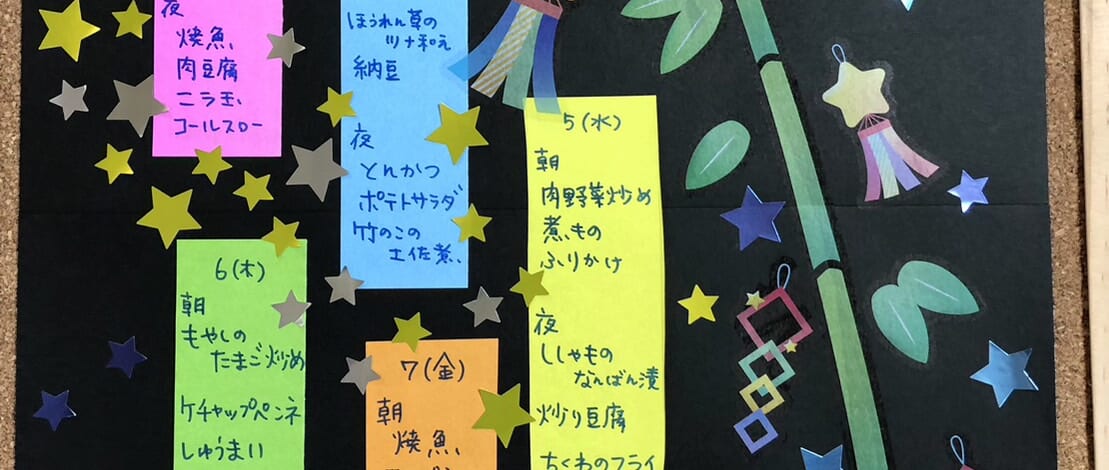 夜
焼魚
肉豆腐
ニラ玉
コールスロー
ほうれん草の
ツナ和え
納豆
夜
とんかつ
ポテトサラダ
竹のこの
土佐煮
5(水)
朝
肉野菜炒め
煮もの
ふりかけ
夜
ししゃもの
なんばん漬
炒り豆腐
ちくわのフライ
6(木)
朝
もやしの
たまご炒め
ケチャップペンネ
しゅうまい
7(金)
朝
焼魚